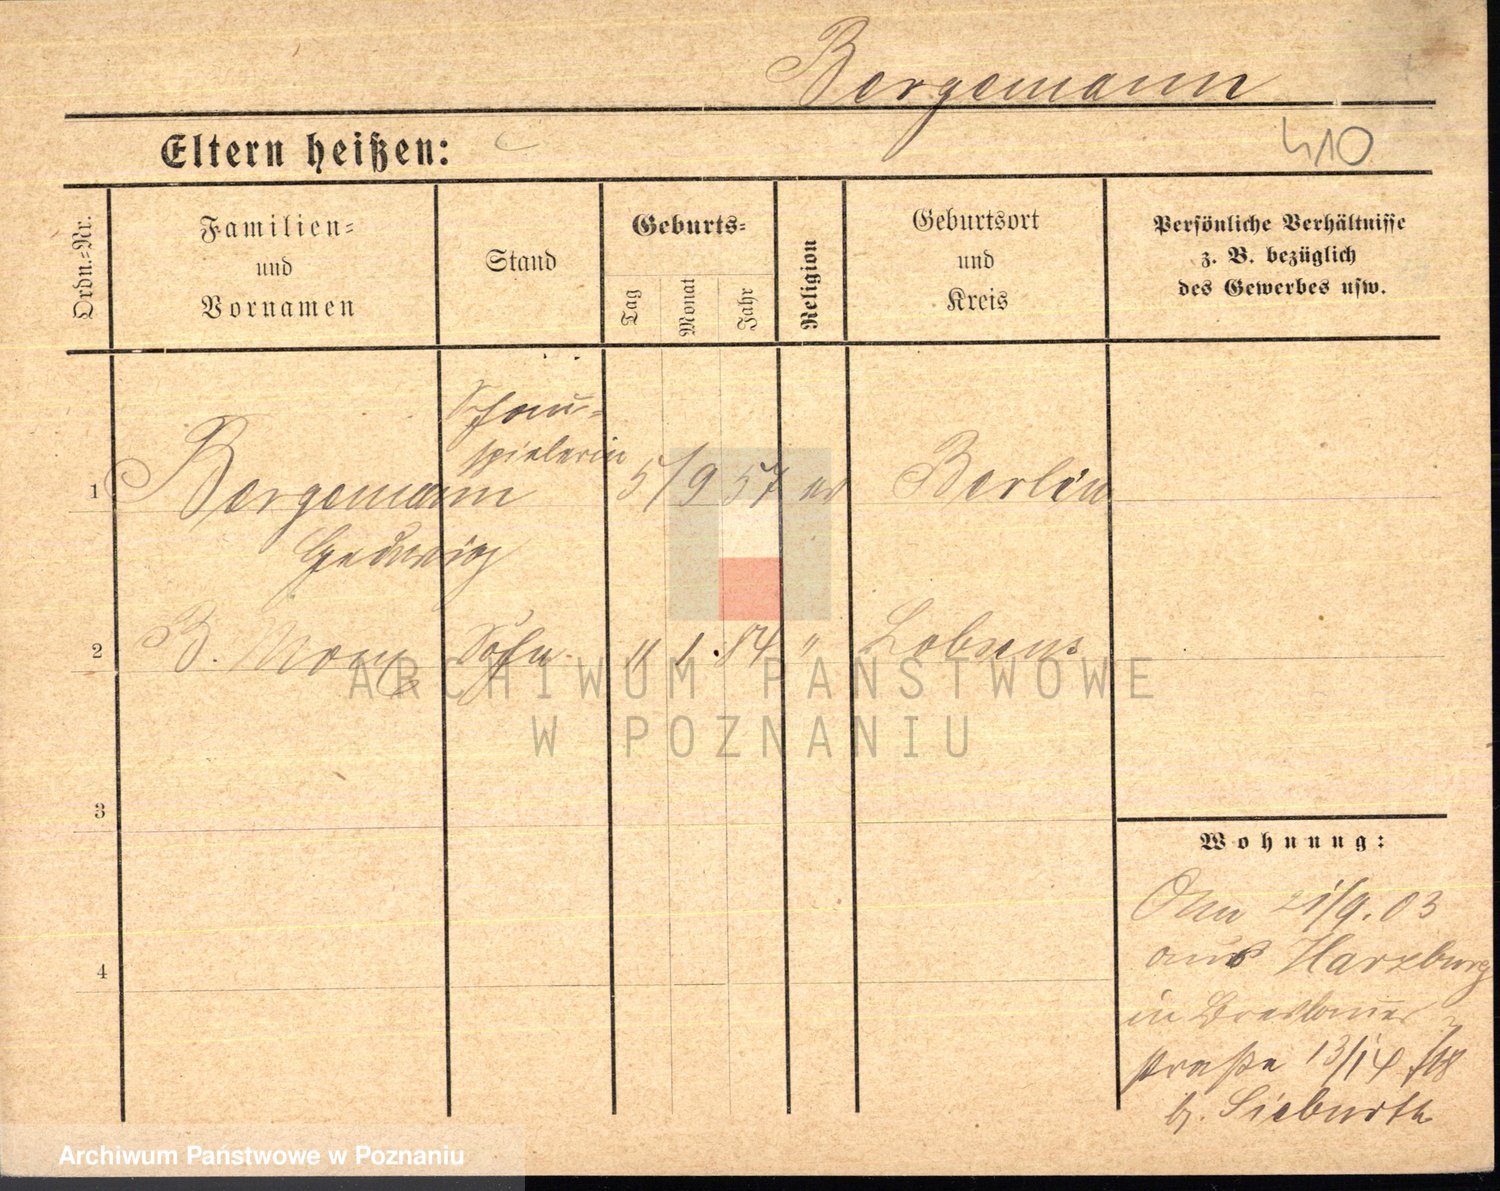 Bergemann
Eltern heißen:
410
Ordn.-Nr.
Familien-
und
Vornamen
Stand
Geburts-
Tag
Monat
Jahr
Religion
Geburtsort
und
Kreis
Persönliche Verhältnisse
z. B. bezüglich
des Gewerbes usw.
Schau-
spielerin
1 Bergemann 5/9 57 ev Berlin
Hedwig
2 B. Sohn " 1. 84 " Lobsens
3
4
Wohnung:
21/9. 03
aus Harzburg
in Breslauer
straße 13/14
b. Sieburth
ARCHIWUM PAŃSTWOWE
W POZNANIU
Archiwum Państwowe w Poznaniu